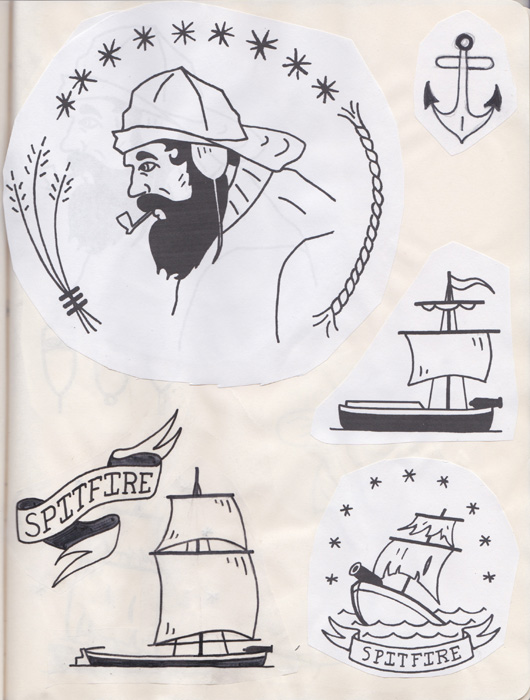 SPITFIRE
SPITFIRE